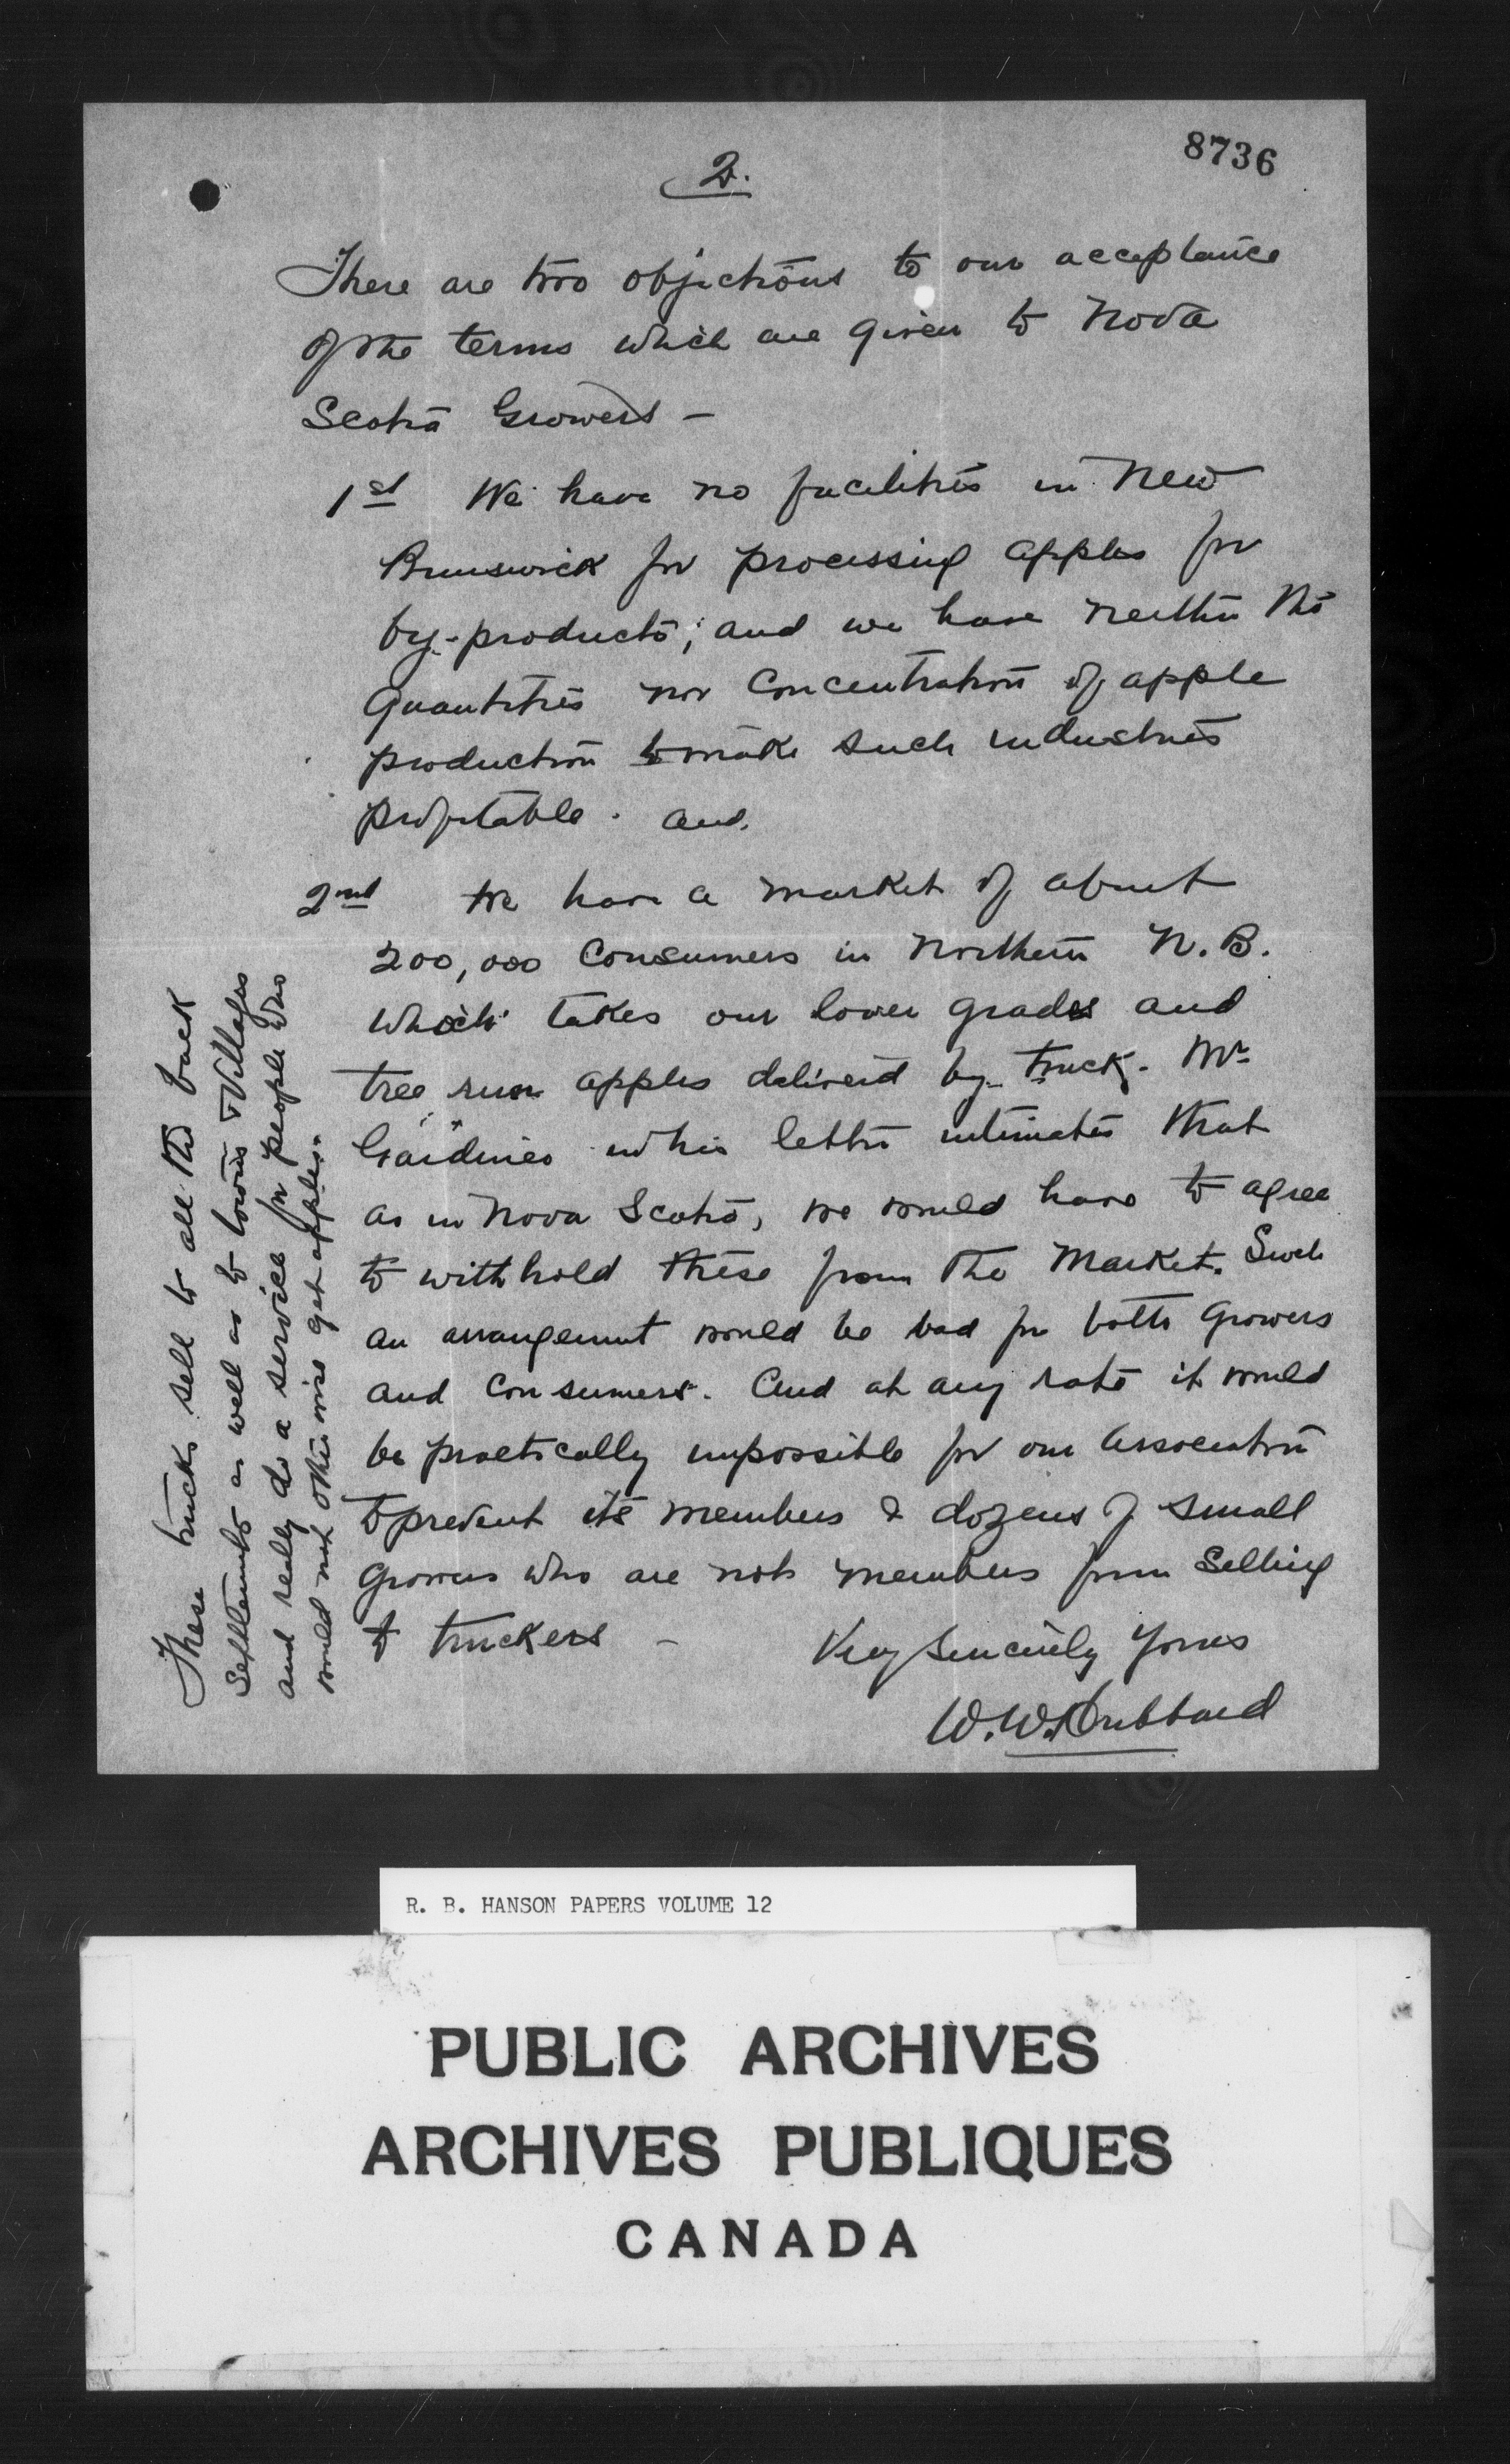 8736
2.
There are two objections to our acceptance
of the terms which are given to Nova
Scotia Growers -
1st We have no facilities in New
Brunswick for processing apples for
by-products; and we have neither the
quantities nor concentration of apple
production to make such industries
profitable. and
2nd We have a market of about
200,000 consumers in Northern N.B.
which takes our lower grades and
tree run apples delivered by truck. Mr
Gardiner in his letter intimates that
as in Nova Scotia, we would have to agree
to withhold these from the Market. Such
an arrangement would be bad for both Growers
and Consumers. And at any rate it would
be practically impossible for our Association
to prevent its members & dozens of small
growers who are not members from selling
to truckers -
Very Sincerely Yours
W.W. Hubbard
These trucks sell to all the back
Settlements as well as to towns & Villages
and really do a service for people who
would not otherwise get apples.
R. B. HANSON PAPERS VOLUME 12
PUBLIC ARCHIVES
ARCHIVES PUBLIQUES
CANADA